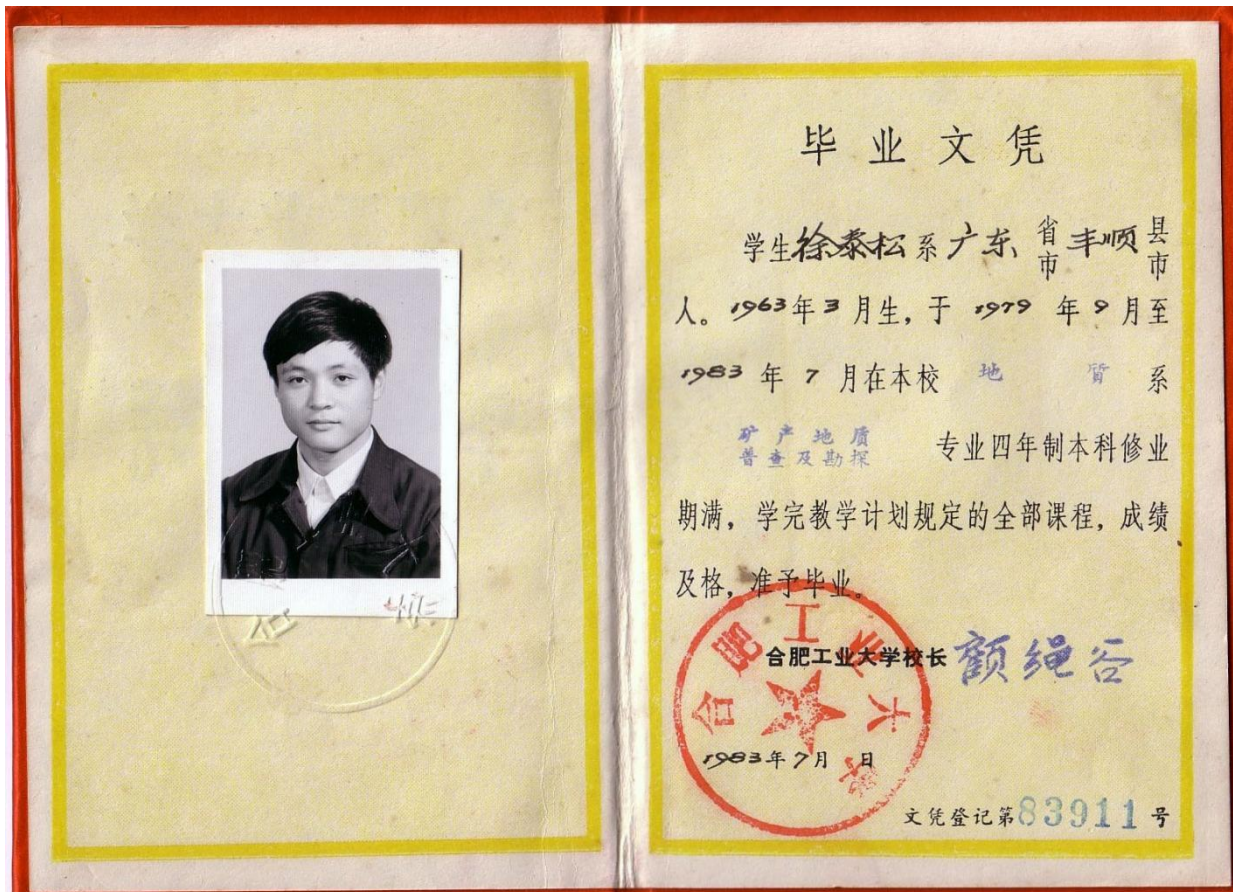 毕业文凭
学生徐泰松系广东省市丰顺县市
人。1963年3月生,于1979年9月至
1983年7月在本校地质系
矿产地质
普查及勘探
专业四年制本科修业
期满,学完教学计划规定的全部课程,成绩
及格,准予毕业。
合肥工业大学校长
合肥工业大学
1983年7月 日
文凭登记第83911号